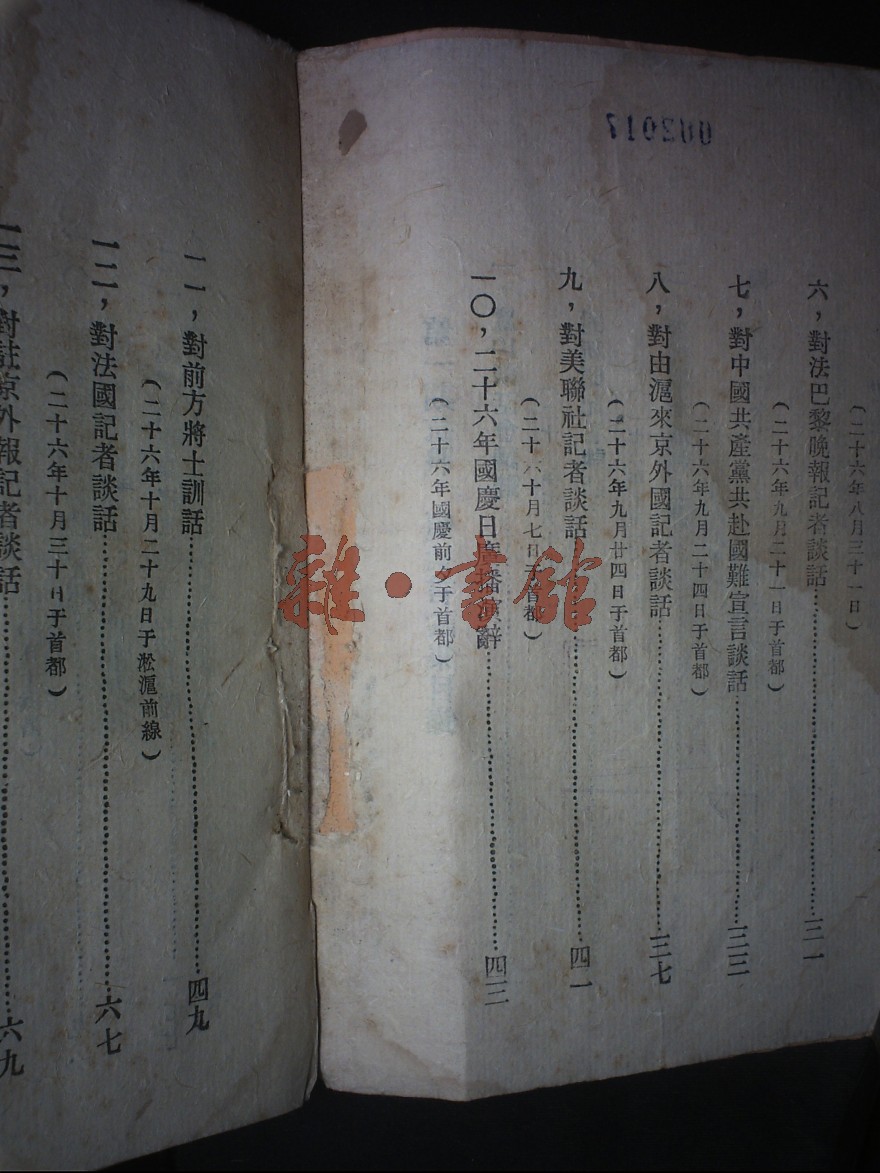 （二十六年八月三十一日）
六，對法巴黎晚報記者談話……三一
（二十六年九月二十一日于首都）
七，對中國共產黨共赴國難宣言談話……三三
（二十六年九月二十四日于首都）
八，對由滬來京外國記者談話……三七
（二十六年九月廿四日于首都）
九，對美聯社記者談話……四一
（二十六十月七日于首都）
一〇，二十六年國慶日廣播演辭……四三
（二十六年國慶前夕于首都）
一一，對前方將士訓話……四九
（二十六年十月二十九日于淞滬前線）
一二，對法國記者談話……六七
（二十六年十月三十日于首都）
一三，對駐京外報記者談話……六九
雜·書館